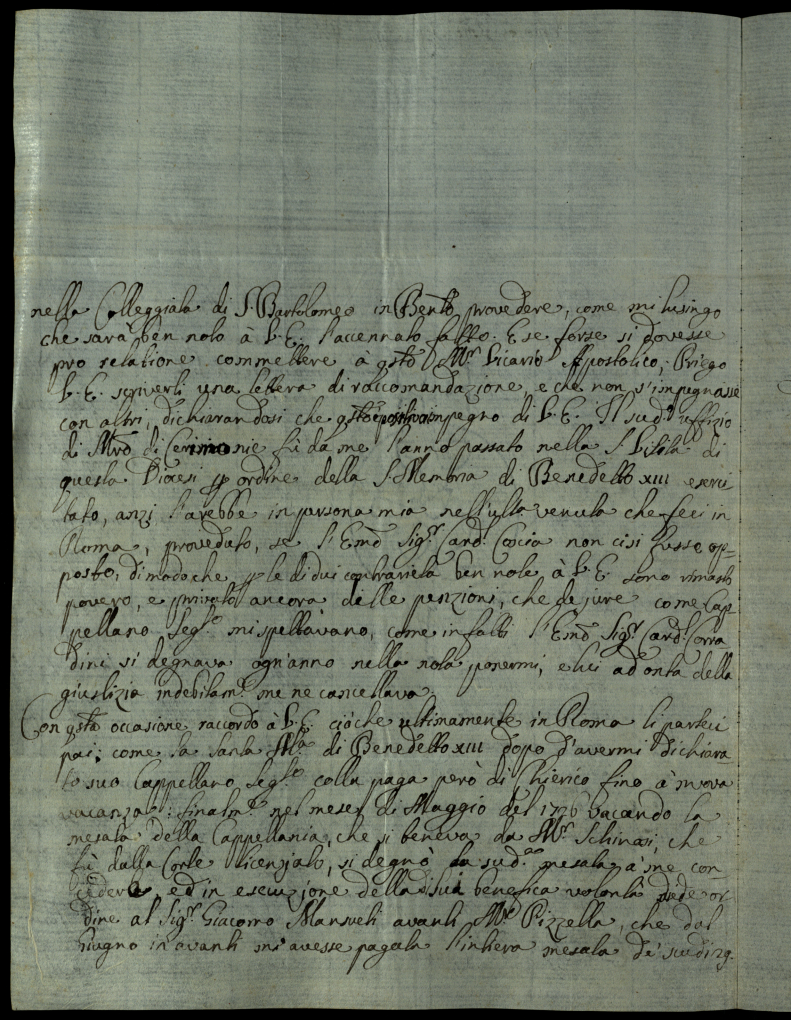 nella Colleggiata di S. Bartolomeo in Bento provedere, come mi lusingo
che sarà ben noto à V. E. l'accennato fatto. E se forse si dovesse
pro relatione commettere à qsto Mr. Vicario Apostolico, Priego
V. E. scriverli una lettera di raccomandazione, e che non s'impegnasse
con altri, dichiarandosi che qsto impegno di V. E. Il sudo uffizio
di Mro di Cerimonie fù da me l'anno passato nella S. Visita di
questa Diocesi p ordine della S. Memoria di Benedetto XIII eserci-
tato, anzi l'arebbe in persona mia nell'ulta venuta che feci in
Roma, proveduto, se l'Emo Sigr. Card. Coscia non ci si fusse op-
posto, di modo che p le di cui contrarietà ben note à V. E. sono rimasto
povero, e privato ancora delle penzioni, che de jure come Cap-
pellano Sego mi spettavano, come in fatti l'Emo Sigr. Card. Corra-
dini si degnava ogn'anno nella nota ponermi, e lui ad onta della
giustizia indebitamte me ne cancellava.
Con qsta occasione raccordo à V. E. ciòche ultimamente in Roma li parteci-
pai; come la Santa Mia di Benedetto XIII dopo d'avermi dichiara-
to suo Cappellano Sego colla paga però di Chierico fino à nuova
vacanza: finalmte nel mese di Maggio del 1726 vacando la
mesata della Cappellania, che si teneva da Mr. Schinosi, che
fù dalla Corte licenziato, si degnò la suda mesata à me con-
cedere, ed in esecuzione della di sua benefica volontà diede or-
dine al Sigr. Giacomo Mansueti avanti Mr. Pizzella, che dal
Giugno in avanti mi avesse pagata l'intiera mesata de